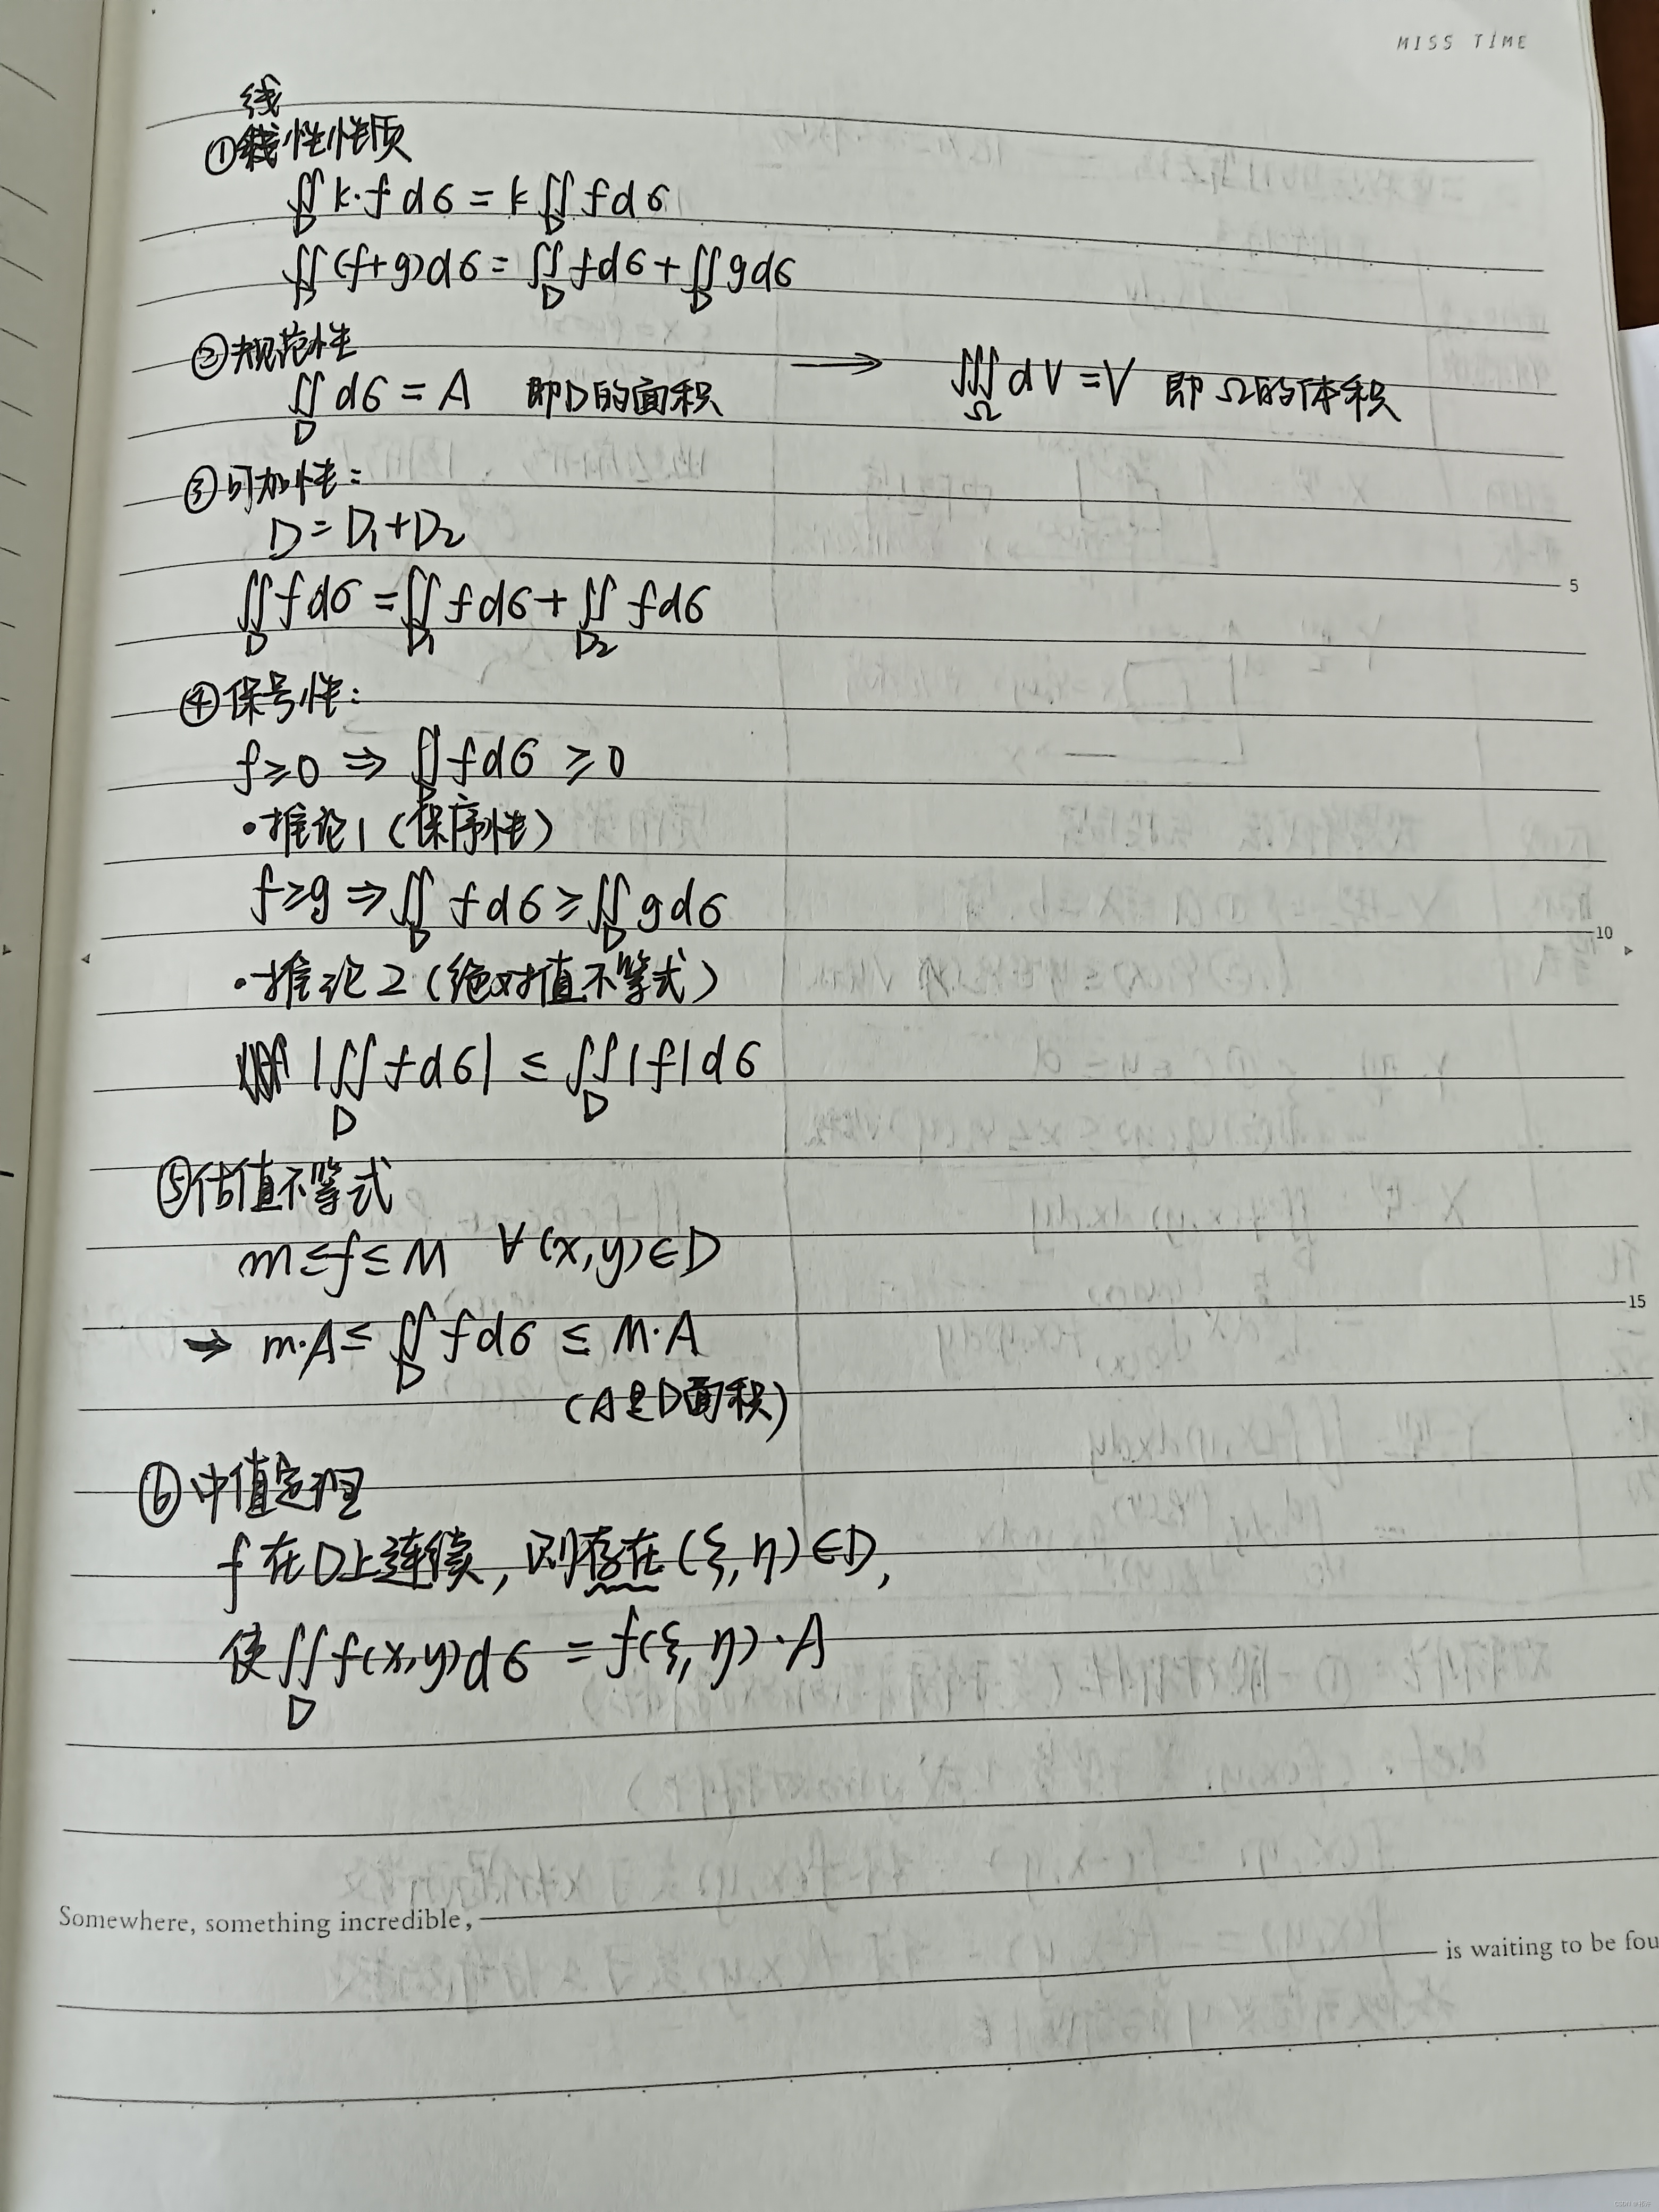 MISS TIME
线
①线性性质
∬_D k·f dσ = k ∬_D f dσ
∬_D (f+g)dσ = ∬_D f dσ + ∬_D g dσ
②规范性
∬_D dσ = A 即D的面积 → ∭_Ω dV = V 即Ω的体积
③可加性:
D = D₁+D₂
∬_D f dσ = ∬_D₁ f dσ + ∬_D₂ f dσ
5
④保号性:
f≥0 ⇒ ∬_D f dσ ≥ 0
·推论1(保序性)
f≥g ⇒ ∬_D f dσ ≥ ∬_D g dσ
10
·推论2(绝对值不等式)
|∬_D f dσ| ≤ ∬_D |f| dσ
⑤估值不等式
m≤f≤M ∀(x,y)∈D
15
⇒ m·A ≤ ∬_D f dσ ≤ M·A
(A是D面积)
⑥中值定理
f在D上连续,则存在(ξ,η)∈D,
使∬_D f(x,y)dσ = f(ξ,η)·A
Somewhere, something incredible,
is waiting to be fou